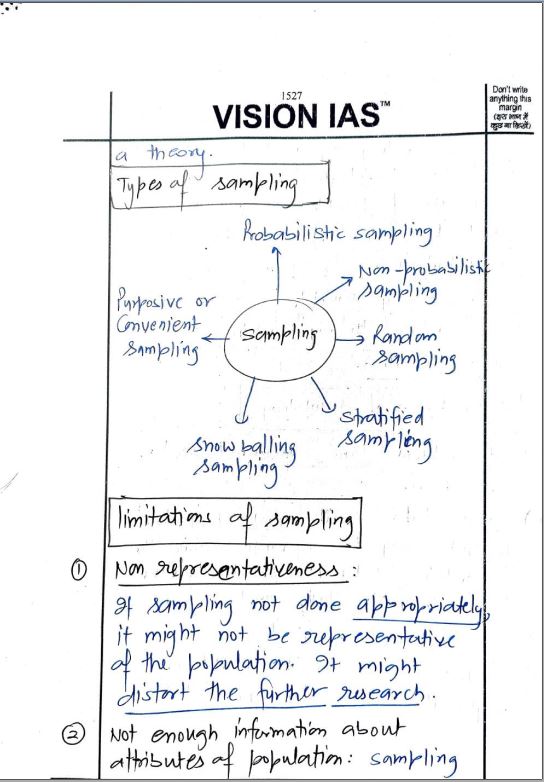 1527
VISION IAS™
Don't write
anything this
margin
(इस भाग में
कुछ ना लिखें)
a theory.
Types of sampling
Probabilistic sampling
Non-probabilistic
sampling
Purposive or
Convenient
Sampling
Sampling
Random
sampling
Stratified
sampling
Snow balling
sampling
limitations of sampling
① Non representativeness :
If sampling not done appropriately,
it might not be representative
of the population. It might
distort the further research.
② Not enough information about
attributes of population: sampling